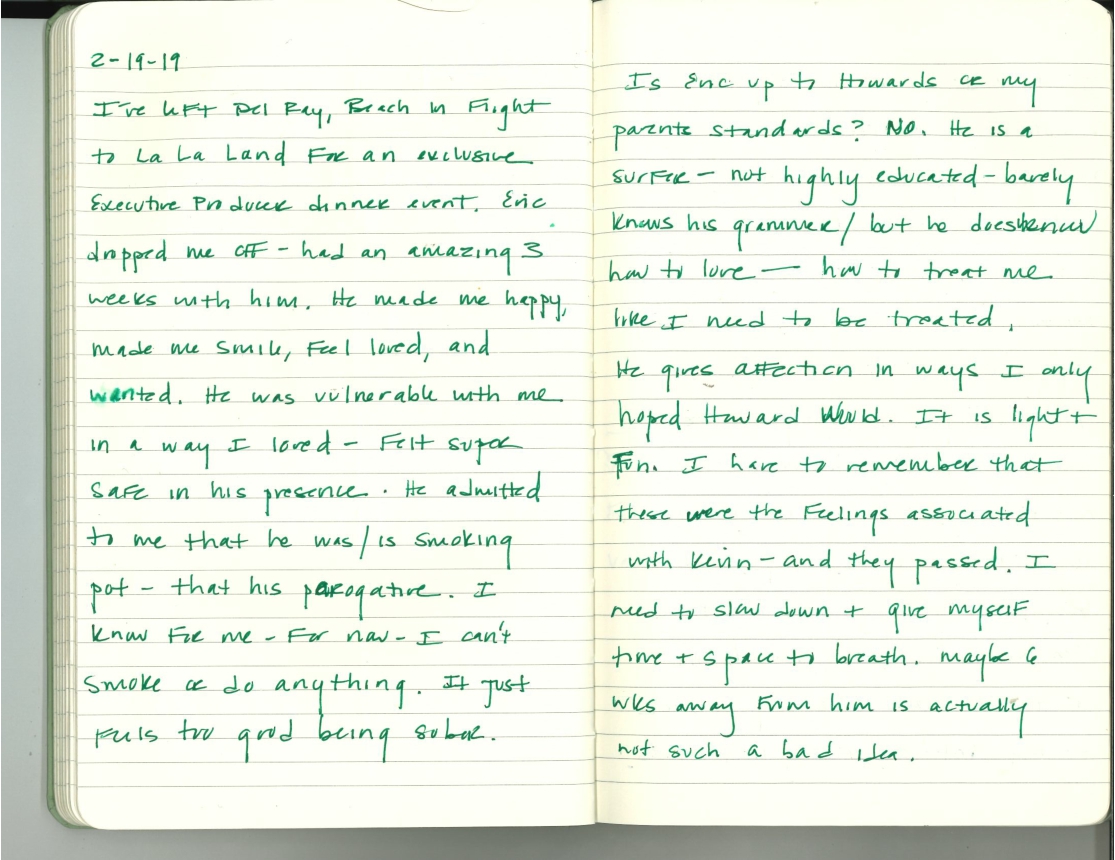 2-19-19
I've left Del Ray, Beach in Flight
to La La Land For an exclusive
Executive Producer dinner event. Eric
dropped me off - had an amazing 3
weeks with him. He made me happy,
made me smile, Feel loved, and
wanted. He was vulnerable with me
in a way I loved - Felt super
safe in his presence. He admitted
to me that he was/is smoking
pot - that his parogative. I
know For me - For now - I can't
smoke or do anything. It just
Feels too good being sober.
Is Eric up to Howards or my
parents standards? NO. He is a
surfer - not highly educated - barely
knows his grammer/ but he does know
how to love — how to treat me
like I need to be treated.
He gives affection in ways I only
hoped Howard Would. It is light +
Fun. I have to remember that
these were the Feelings associated
with Kevin - and they passed. I
need to slow down + give myself
time + space to breath. maybe 6
wks away From him is actually
not such a bad idea.